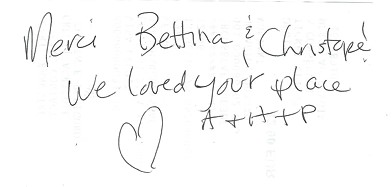 Merci Bettina & Christophe!
We loved your place
A+H+P